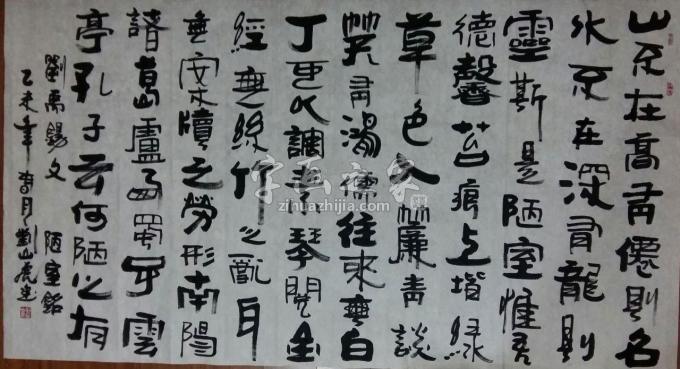 山不在高有僊則名
水不在深有龍則
靈斯是陋室惟吾
德馨苔痕上堦緑
草色入簾青談
笑有鴻儒往來無白
丁可以調素琴閱金
經無絲竹之亂耳
無案牘之勞形南陽
諸葛廬西蜀子雲
亭孔子云何陋之有
劉禹錫文 陋室銘
乙未年春月劉山
字画之家
zihuazhijia.com